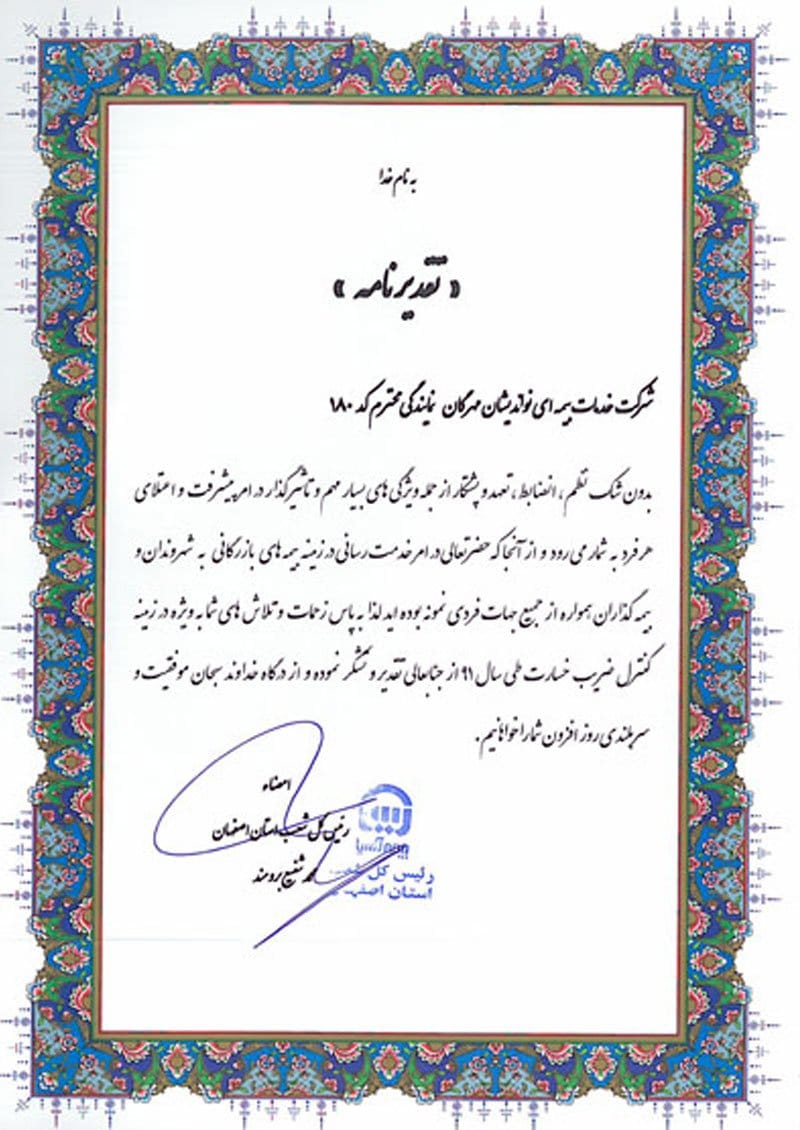 به نام خدا
« تقدیرنامه »
شرکت خدمات بیمه ای نواندیشان مهرگان نمایندگی محترم کد ۱۸۰
بدون شک نظم ، انضابط ، تعهد و پشتکار از جمله ویژگی های بسیار مهم و تاثیرگذار در امر پیشرفت و اعتلای
هر فرد به شمار می رود و از آنجا که حضرتعالی در امر خدمت رسانی در زمینه بیمه های بازرگانی به شهروندان و
بیمه گذاران همواره از جمیع جهات فردی نمونه بوده اید لذا به پاس زحمات و تلاش های شما به ویژه در زمینه
کنترل ضریب خسارت طی سال ۹۱ از جنابعالی تقدیر و تشکر نموده و از درگاه خداوند سبحان موفقیت و
سربلندی روز افزون شما را خواهانیم .
امضاء
رئیس کل شعب استان اصفهان
شفیع برومند
بیمه آسیا
رئیس کل
استان